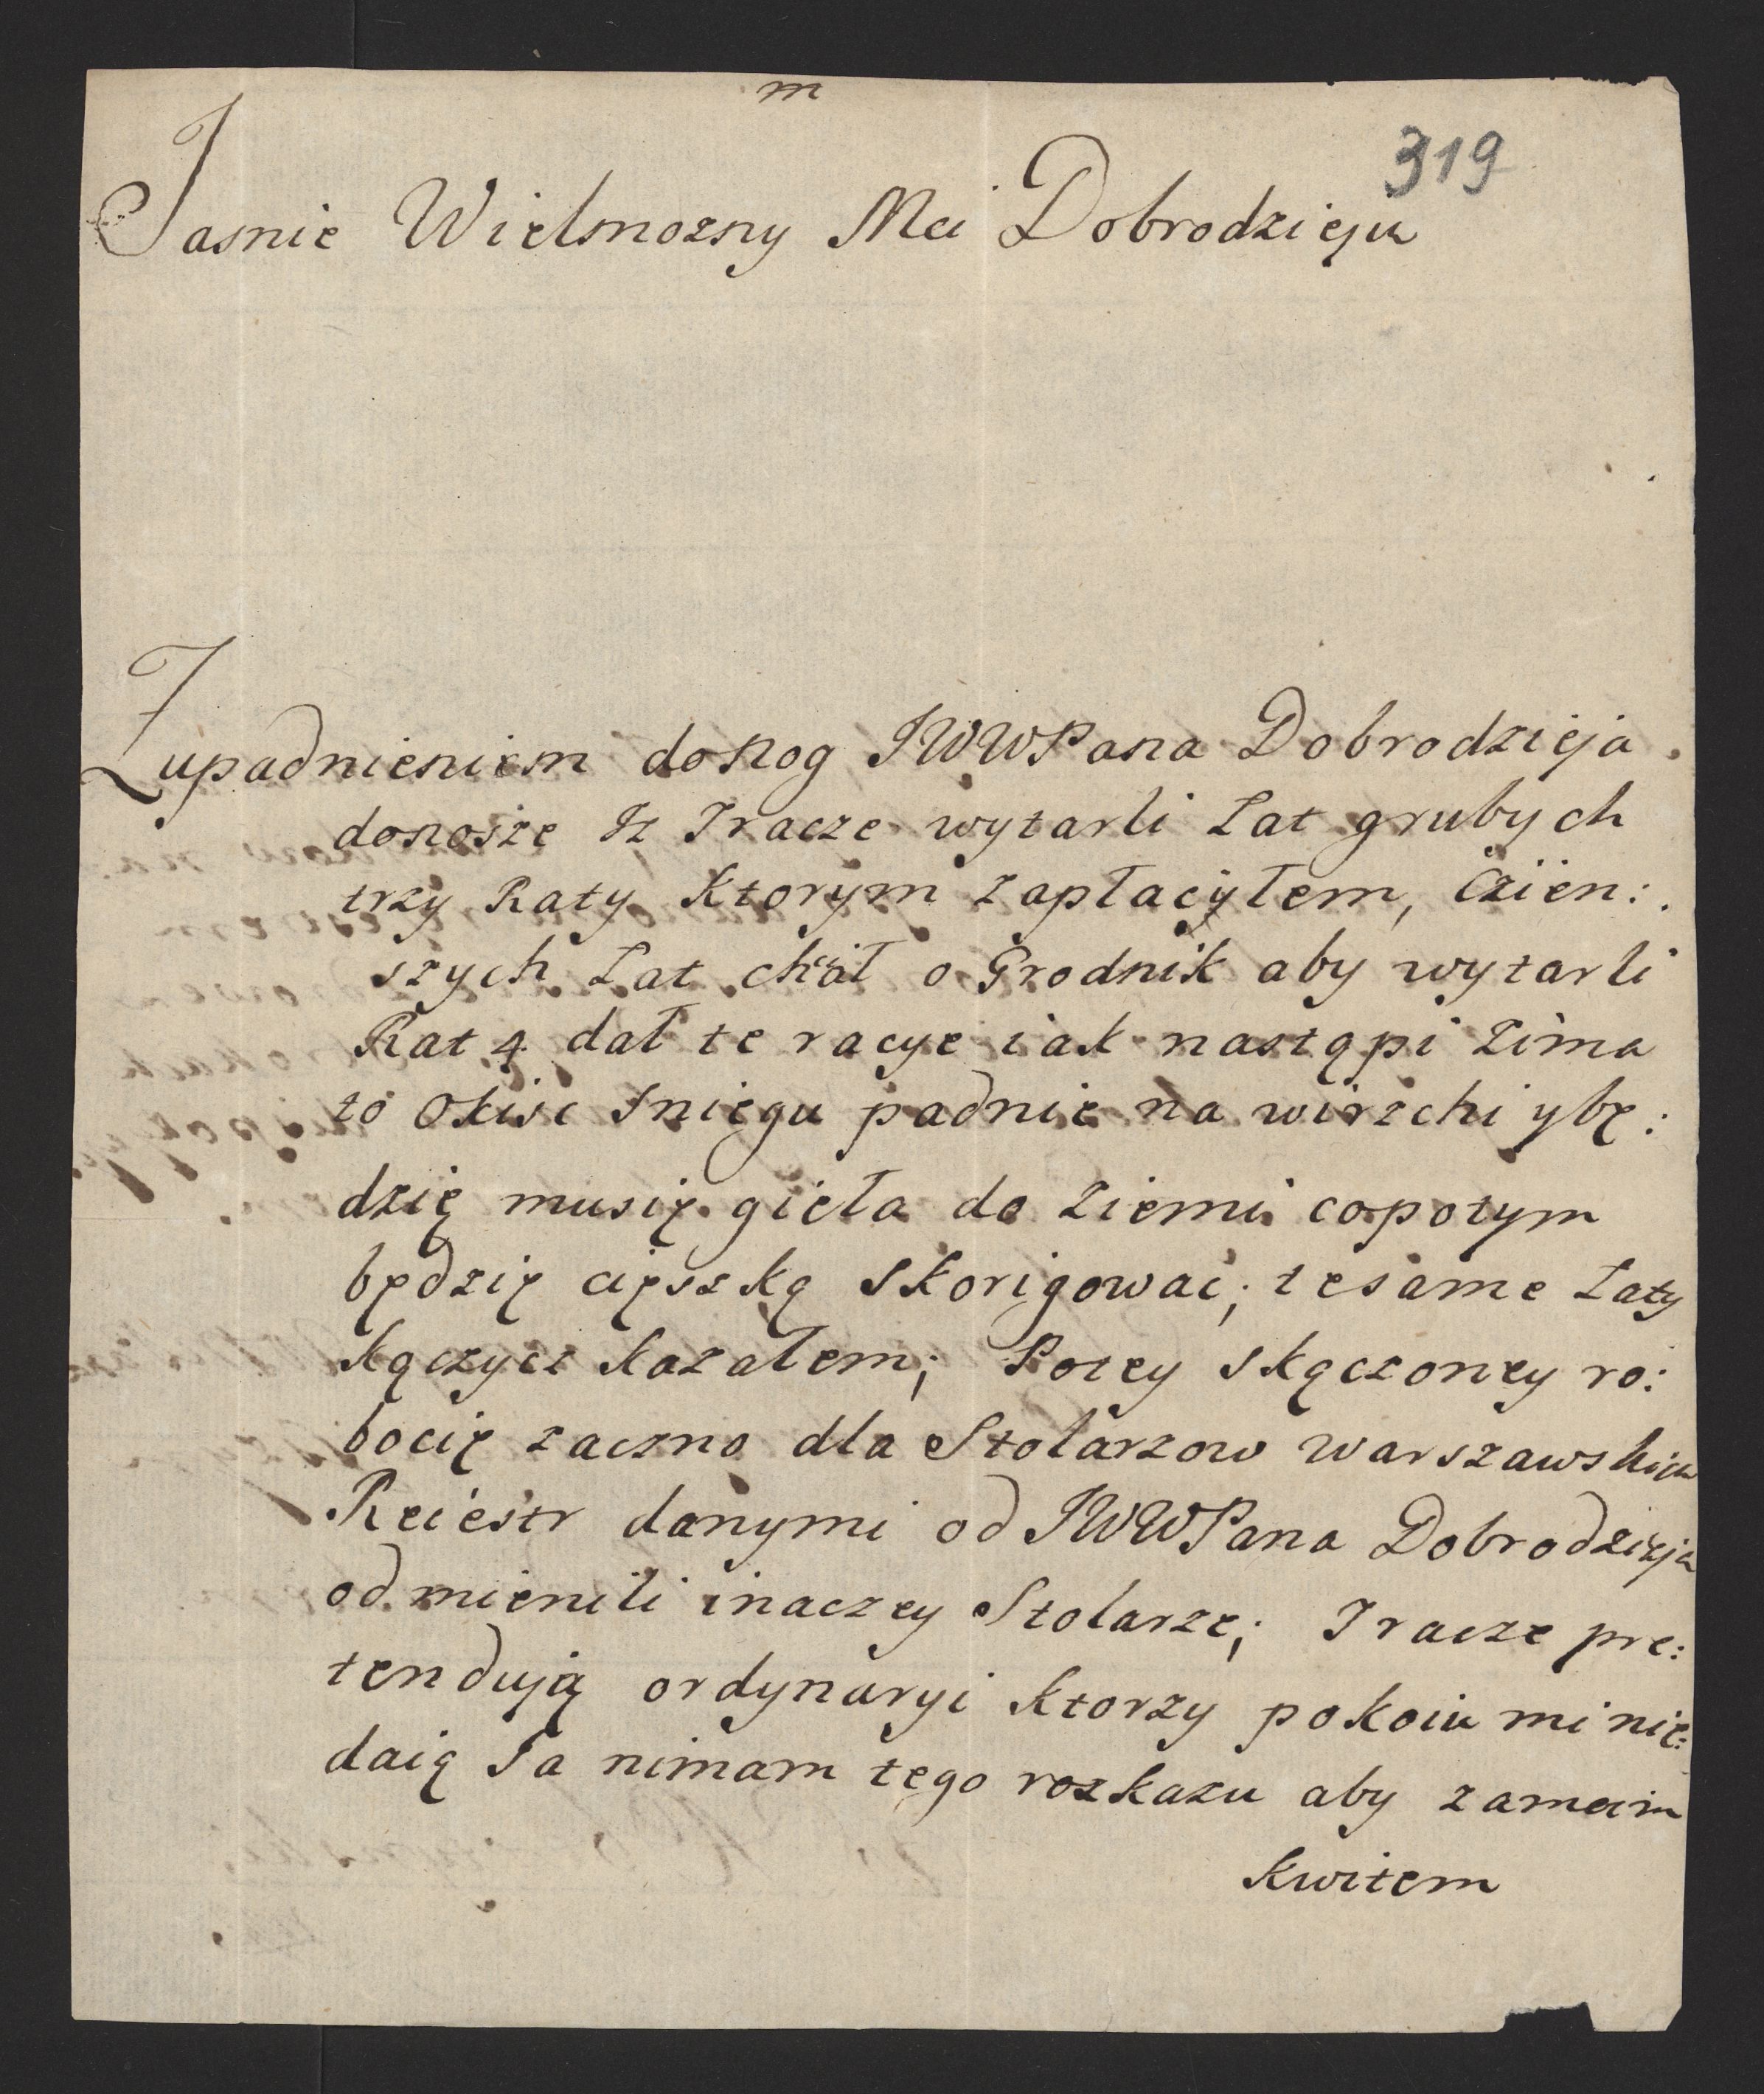 m
319
Jasnie Wielmozny Mci Dobrodzieju
Zupadnieniem donog JWWPana Dobrodzieja
donosze Iz Tracze wytarli Łat grubych
trzy Raty Ktorym zapłacyłem, Czien:
szych Łat chciał oGrodnik aby wytarli
Rat 4 dał te racye iak nastąpi zima
to Okisc sniegu padnie na wirzchi ybę:
dzię musię gieła do ziemi copotym
będzię cięszką skorigowac; tesame Łaty
kączycz kazałem; Potey skączoney ro:
bocię zaczno dla Stolarzow warszawskich
Reiestr danymi od JWWPana Dobrodzieja
odmienili inaczey Stolarze; Tracze pre:
tendują ordynaryi ktorzy pokoiu mi nie:
daią Ja nimam tego rozkazu aby zamoim
kwitem